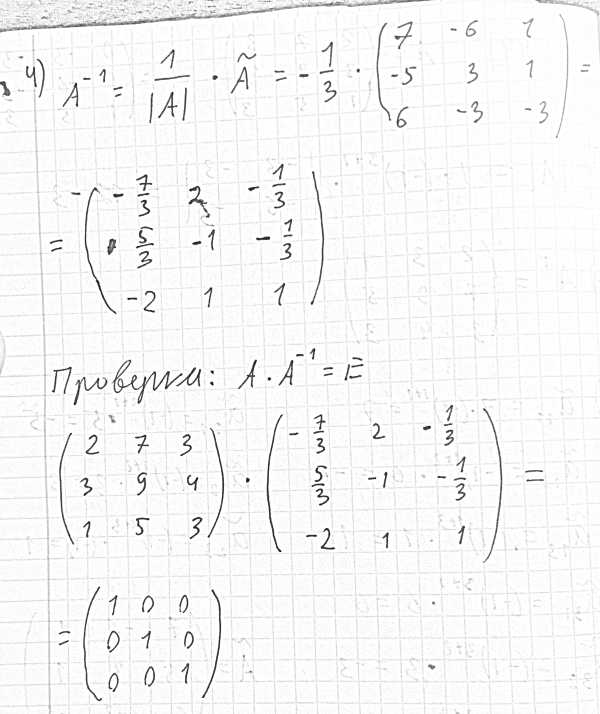 4) A⁻¹ = 1/|A| · Ã = - 1/3 · ( 7 -6 1
-5 3 1
6 -3 -3 ) =
= ( - 7/3 2 - 1/3
5/3 -1 - 1/3
-2 1 1 )
Проверка: A · A⁻¹ = E
( 2 7 3
3 9 4
1 5 3 ) · ( - 7/3 2 - 1/3
5/3 -1 - 1/3
-2 1 1 ) =
= ( 1 0 0
0 1 0
0 0 1 )